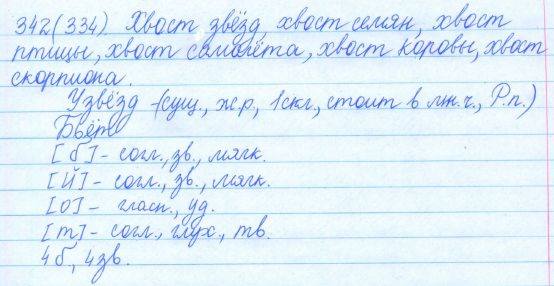 342(334) Хвост звёзд, хвост семян, хвост
птицы, хвост самолёта, хвост коровы, хвост
скорпиона.
Узвёзд -(сущ., ж.р, 1скл, стоит в мн.ч., Р.п.)
Бьёт
[б]- согл., зв., мягк.
[Й]- согл., зв., мягк.
[о]- гласн., уд.
[т]- согл., глух., тв.
4б, 4зв.